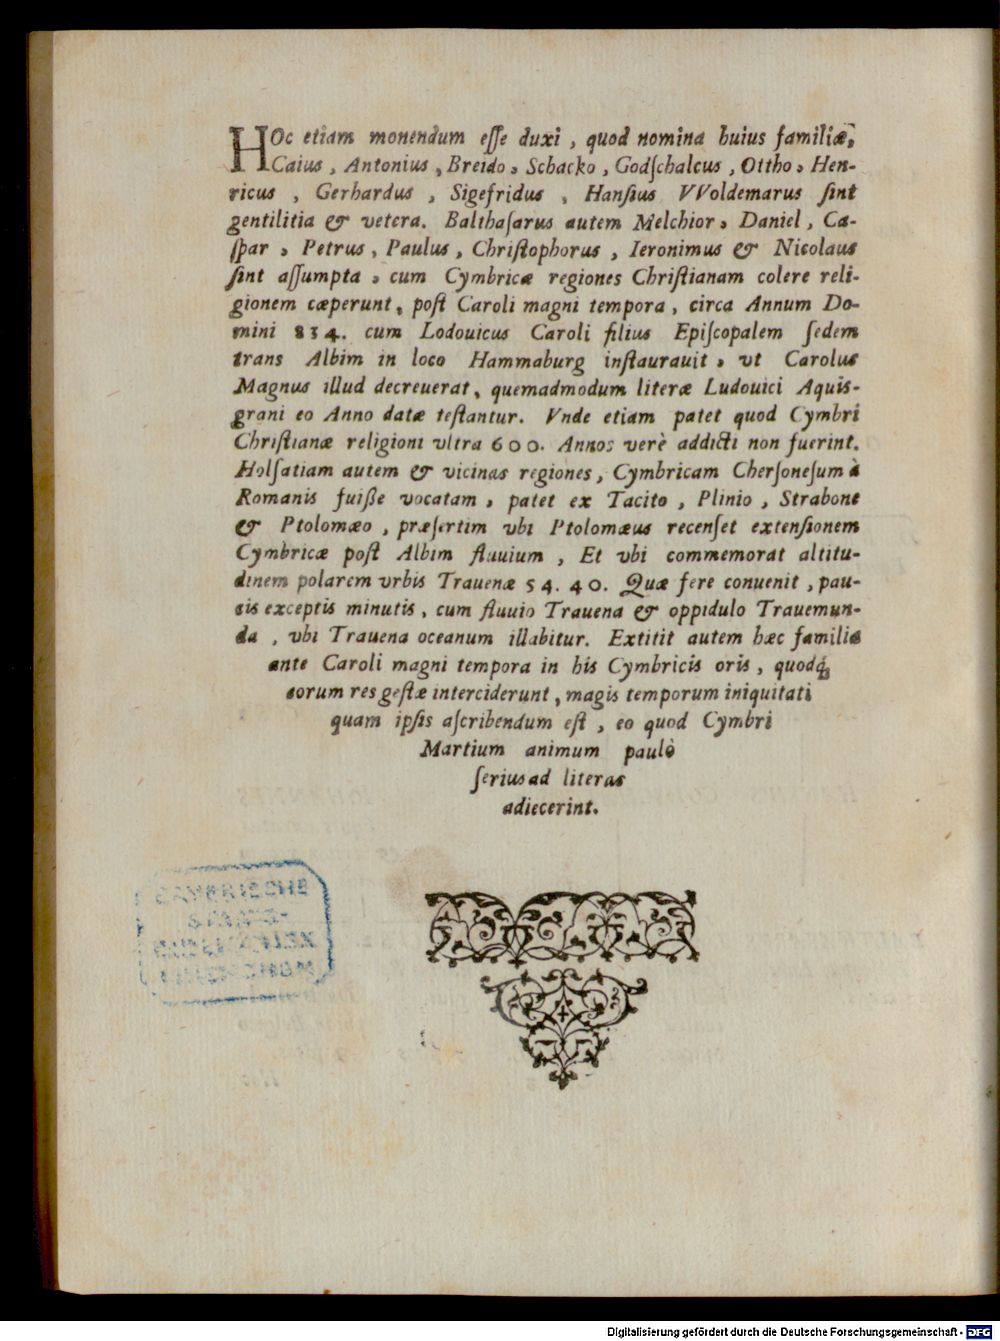 HOc etiam monendum eſſe duxi , quod nomina huius familiæ,
Caius , Antonius , Breido , Schacko , Godſchalcus , Ottho , Hen-
ricus , Gerhardus , Sigefridus , Hanſius VVoldemarus ſint
gentilitia & vetera. Balthaſarus autem Melchior , Daniel , Ca-
ſpar , Petrus , Paulus , Chriſtophorus , Ieronimus & Nicolaus
ſint aſſumpta , cum Cymbricæ regiones Chriſtianam colere reli-
gionem cæperunt , poſt Caroli magni tempora , circa Annum Do-
mini 834. cum Lodouicus Caroli filius Epiſcopalem ſedem
trans Albim in loco Hammaburg inſtaurauit , vt Carolus
Magnus illud decreuerat , quemadmodum literæ Ludouici Aquis-
grani eo Anno datæ teſtantur. Vnde etiam patet quod Cymbri
Chriſtianæ religioni vltra 600. Annos verè addicti non fuerint.
Holſatiam autem & vicinas regiones , Cymbricam Cherſoneſum à
Romanis fuiße vocatam , patet ex Tacito , Plinio , Strabone
& Ptolomæo , præſertim vbi Ptolomæus recenſet extenſionem
Cymbricæ poſt Albim fluuium , Et vbi commemorat altitu-
dinem polarem vrbis Trauenæ 54. 40. Quæ fere conuenit , pau-
cis exceptis minutis , cum fluuio Trauena & oppidulo Trauemun-
da , vbi Trauena oceanum illabitur. Extitit autem hæc familia
ante Caroli magni tempora in his Cymbricis oris , quodq́ꝫ
eorum res geſtæ interciderunt , magis temporum iniquitati
quam ipſis aſcribendum eſt , eo quod Cymbri
Martium animum paulò
ſerius ad literas
adiecerint.
Digitalisierung gefördert durch die Deutsche Forschungsgemeinschaft - DFG